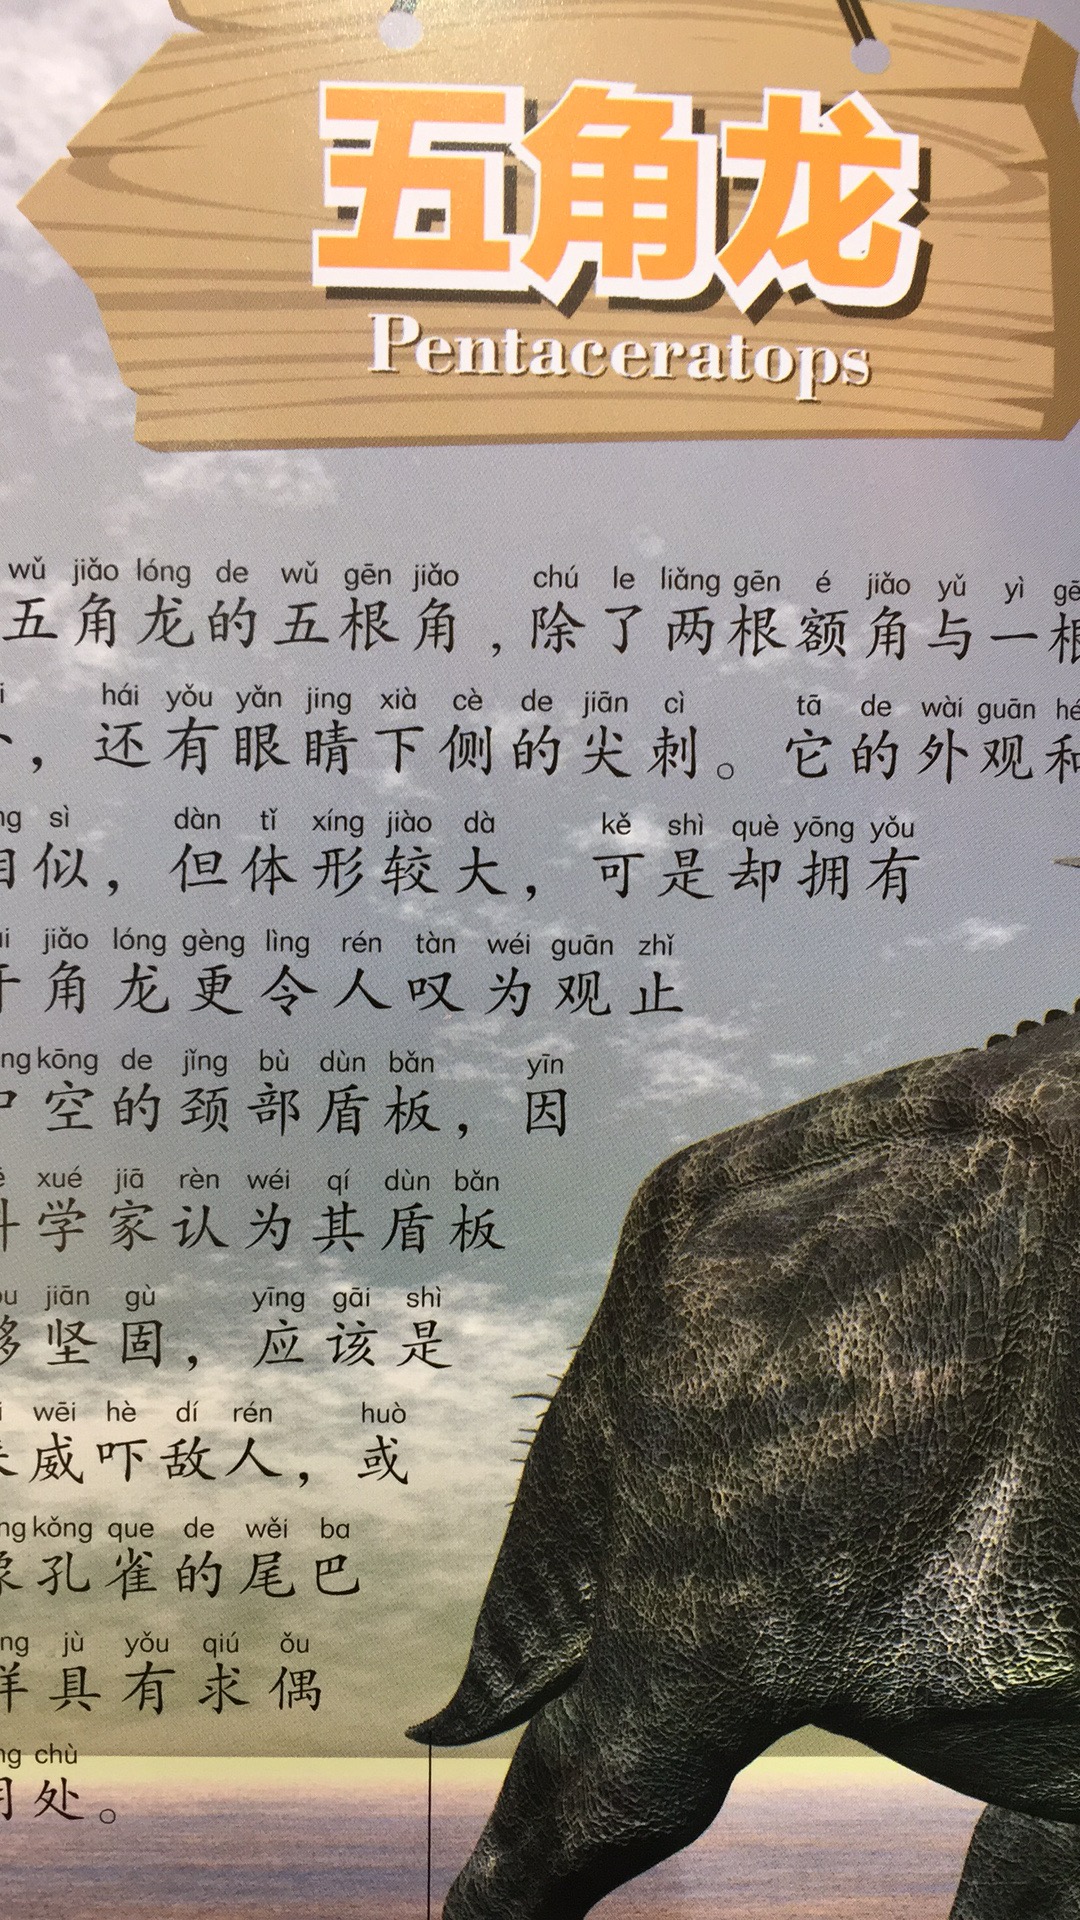 五角龙
Pentaceratops
wǔ jiǎo lóng de wǔ gēn jiǎo chú le liǎng gēn é jiǎo yǔ yì
五角龙的五根角，除了两根额角与一根
hái yǒu yǎn jing xià cè de jiān cì tā de wài guān hé
，还有眼睛下侧的尖刺。它的外观和
sì dàn tǐ xíng jiào dà kě shì què yōng yǒu
相似，但体形较大，可是却拥有
jiǎo lóng gèng lìng rén tàn wéi guān zhǐ
角龙更令人叹为观止
kōng de jǐng bù dùn bǎn yīn
中空的颈部盾板，因
xué jiā rèn wéi qí dùn bǎn
科学家认为其盾板
jiān gù yīng gāi shì
够坚固，应该是
wēi hè dí rén huò
来威吓敌人，或
kǒng que de wěi ba
象孔雀的尾巴
jù yǒu qiú ǒu
样具有求偶
chù
用处。